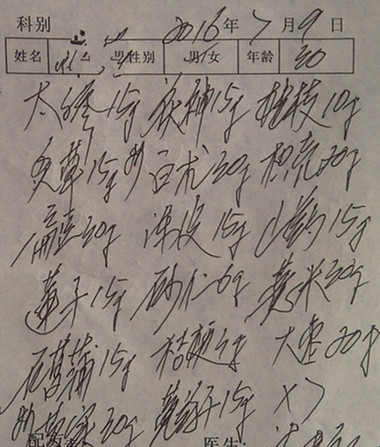 科别 2016年7月9日
姓名 性别 男/女 年龄 30
太子参15g 茯神15g 桂枝10g
炙草15g 炒白术20g 30g
扁豆30g 陈皮15g 山药15g
莲子15g 砂仁6g 薏米30g
石菖蒲15g 桔梗 g 大 30g
炒 30g 15g X7
配方 医生: